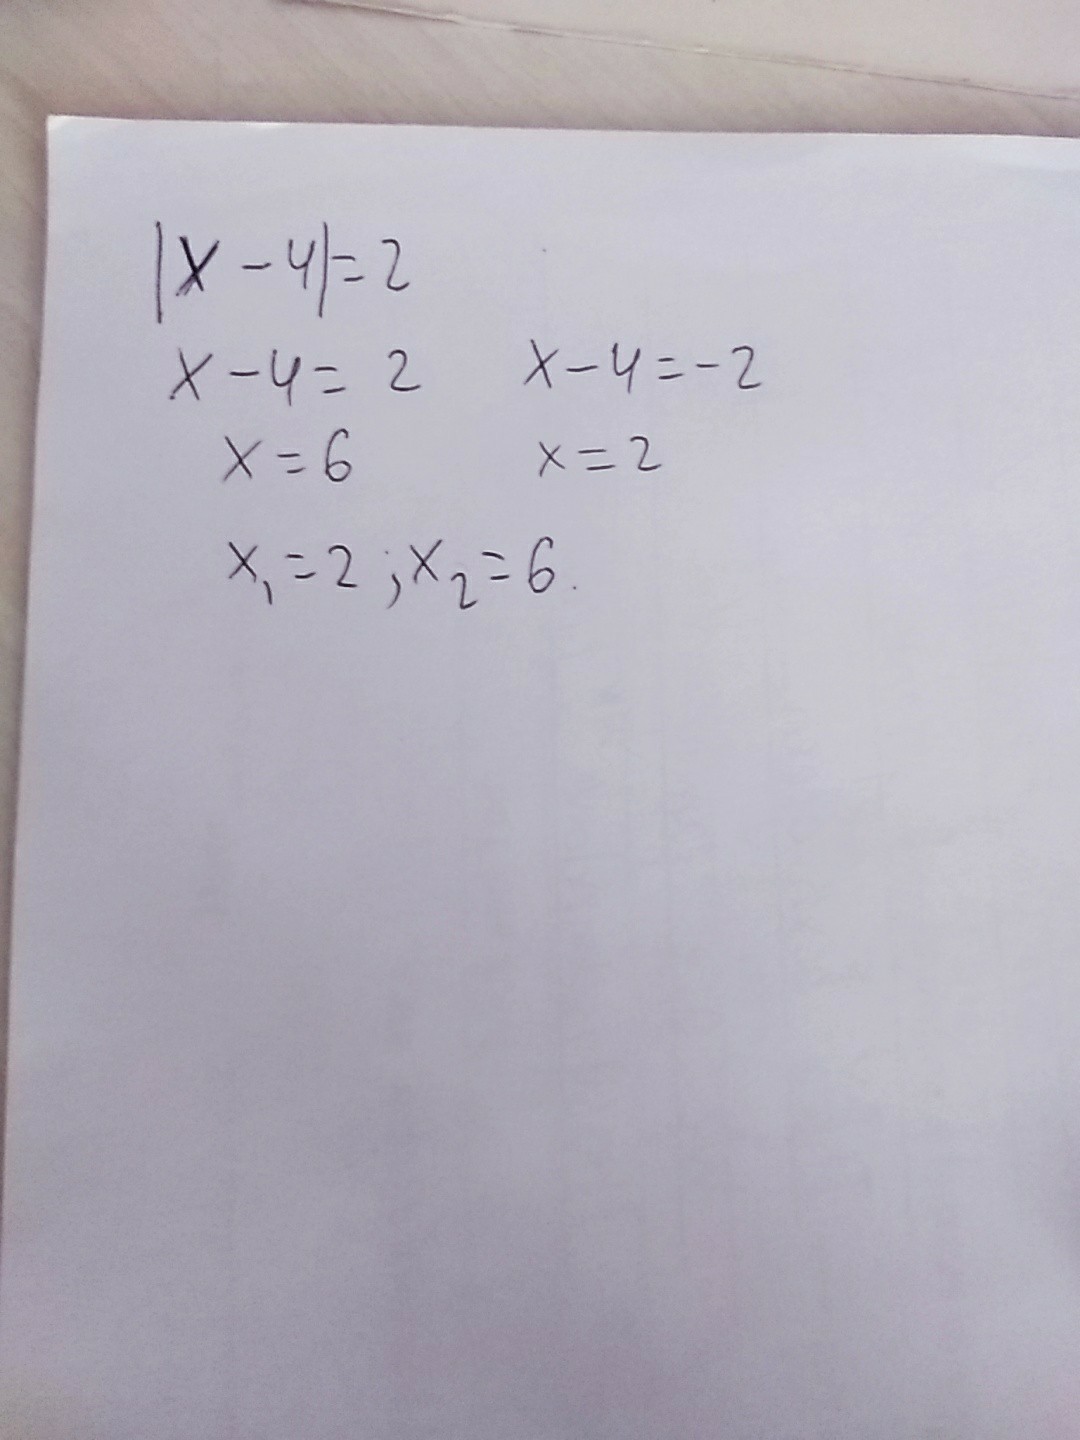 |x-4|=2
x-4=2 x-4=-2
x=6 x=2
x₁=2; x₂=6.